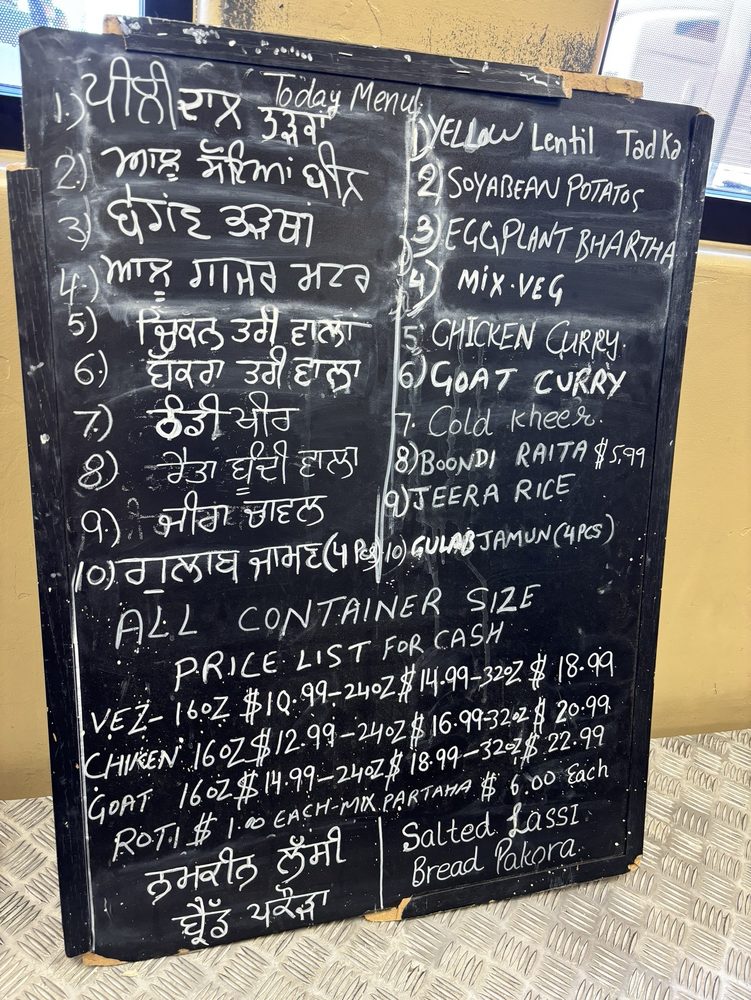 Today Menu
1.) ਪੀਲੀ ਦਾਲ ਤੜਕਾ
2.) ਆਲੂ ਸੋਇਆਂ ਬੀਨ
3) ਬੇਗਣ ਭੜਥਾ
4.) ਆਲੂ ਗਾਜਰ ਮਟਰ
5) ਚਿਕਨ ਤਰੀ ਵਾਲਾ
6.) ਬੱਕਰਾ ਤਰੀ ਵਾਲਾ
7) ਠੰਡੀ ਖੀਰ
8) ਰੈਤਾ ਬੂੰਦੀ ਵਾਲਾ
9.) ਜੀਰਾ ਚਾਵਲ
10) ਗੁਲਾਬ ਜਾਮਣ (4 Pcs)
1) YELLOW Lentil Tadka
2) SOYABEAN POTATOS
3) EGGPLANT BHARTHA
4) MIX.VEG
5 CHICKEN CURRY.
6) GOAT CURRY
7. Cold kheer.
8) BOONDI RAITA $5.99
9) JEERA RICE
10) GULAB JAMUN (4 PCS)
ALL CONTAINER SIZE
PRICE LIST FOR CASH
VEZ- 16OZ $10.99-24OZ $14.99-32OZ $ 18.99
CHIKEN 16OZ $12.99-24OZ $16.99-32OZ $ 20.99
GOAT 16OZ $14.99-24OZ $18.99-32OZ $ 22.99
ROTI $ 1.00 EACH-MIX PARTAHA $ 6.00 Each
ਨਮਕੀਨ ਲੱਸੀ
ਬ੍ਰੈੱਡ ਪਕੌੜਾ
Salted Lassi
Bread Pakora